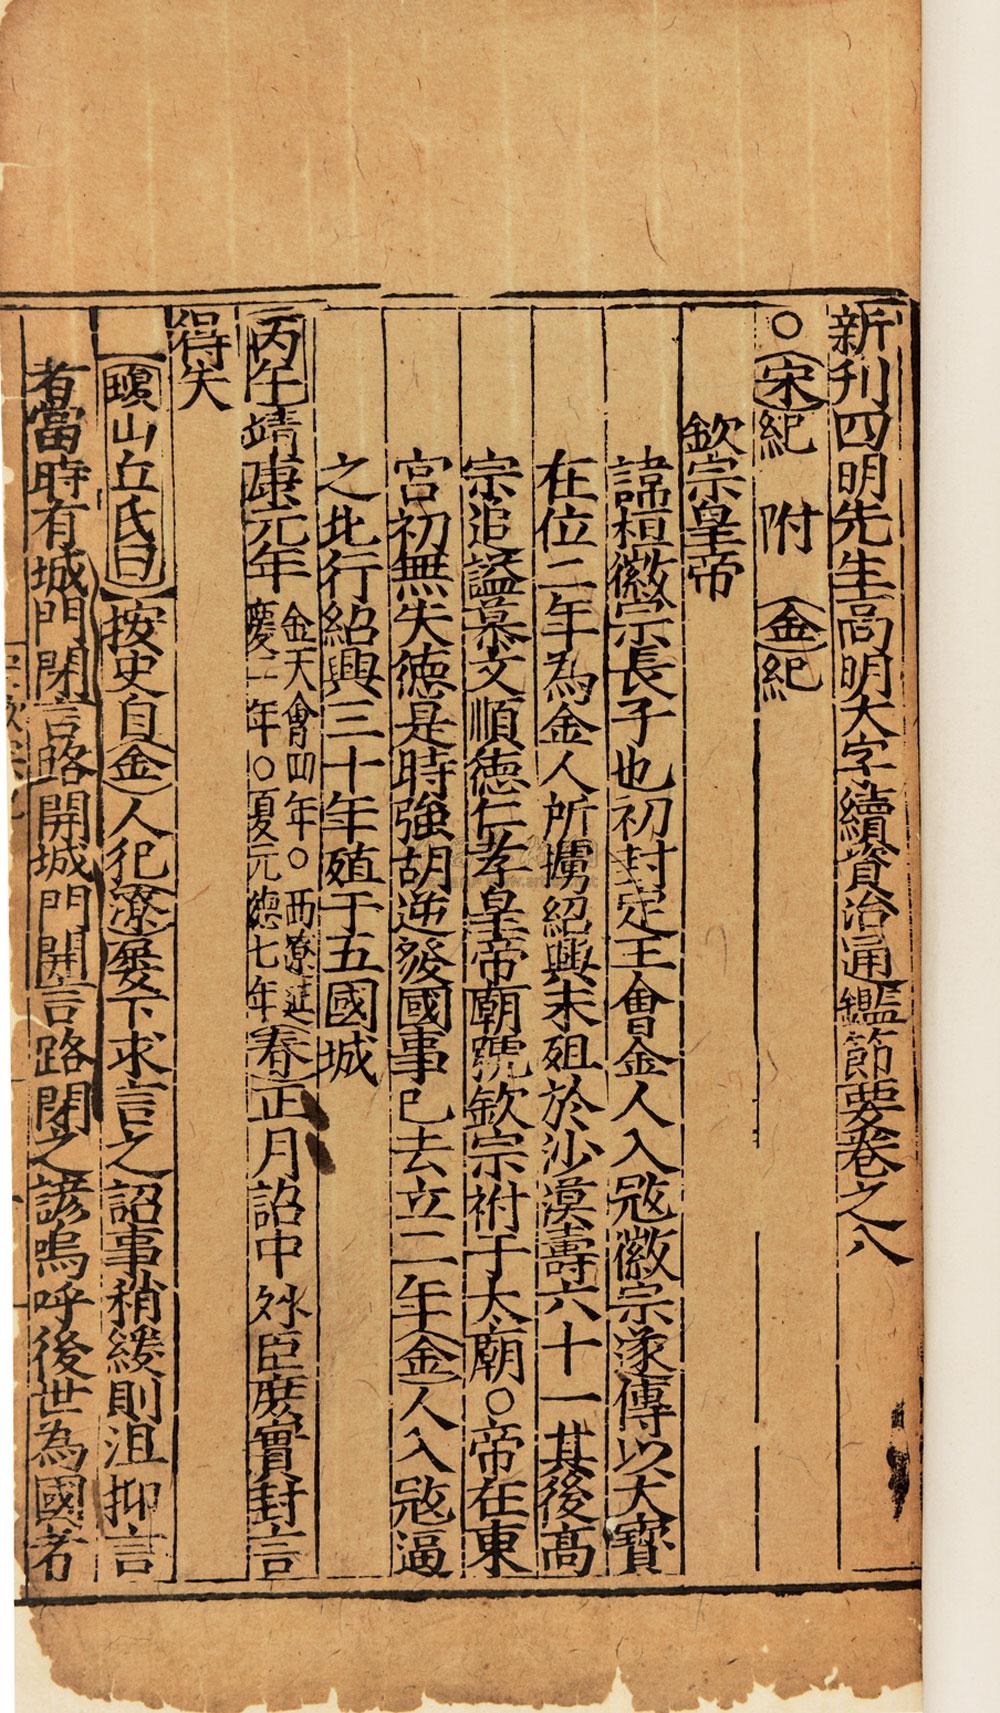 新刊四明先生高明大字續資治通鑑節要卷之八
○宋紀 附 金紀
欽宗皇帝
諱桓徽宗長子也初封定王會金人入㓂徽宗遂傳以大寶
在位二年為金人所擄紹興末殂於沙漠壽六十一其後高
宗追諡恭文順德仁孝皇帝廟號欽宗祔于太廟○帝在東
宮初無失德是時強胡逆發國事已去立二年金人入㓂逼
之北行紹興三十年殖于五國城
丙午靖康元年金天會四年○西遼延慶二年○夏元德七年春正月詔中外臣庶實封言
得失
瓊山丘氏曰按史自金人犯遼屡下求言之詔事稍緩則沮抑言
者當時有城門閉言路開城門開言路閉之諺嗚呼後世為國者